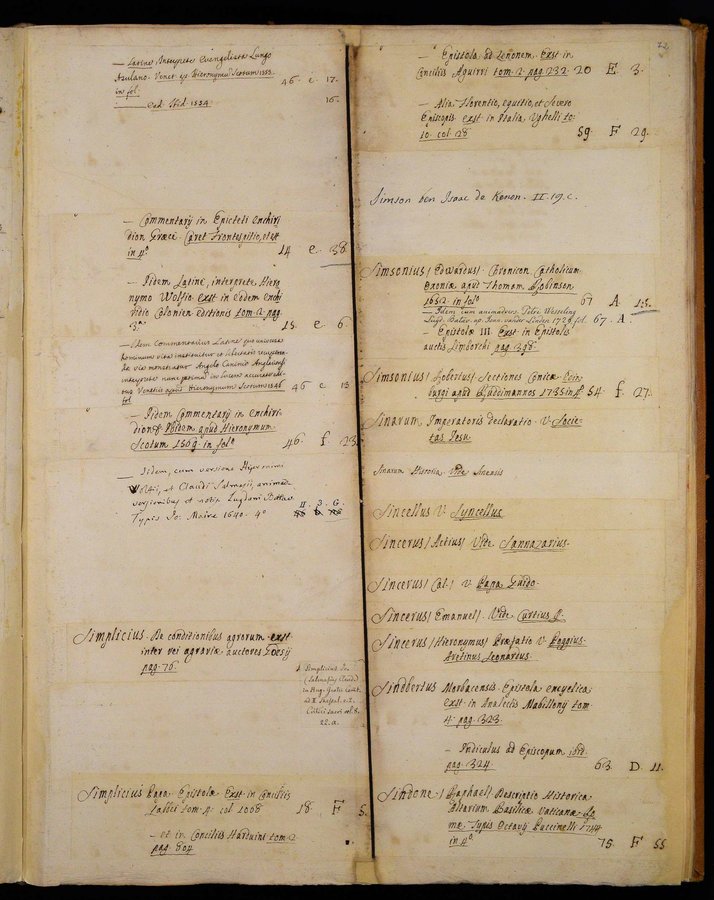 — Latine, Interprete Evangelista Lungo
Asulano. Venet. ap. Hieronymum Scotum 1552.
in fol. 46. c. 17.
— ead. ibid. 1554. 16.
— Commentarij in Epicteti Enchiri
dion Græce. Caret Frontespitio, et est
in 4º 14 e. 38.
— Iidem Latine, interprete Hiero
nymo Wolfio. Exst in eodem Enchi
ridio Colonien editionis tom. 2. pag.
3. 15. e. 6.
— Idem Commentarius Latine
hominum vitas
Angelo Caninio Anglarensi
interprete nunc
Venetiis apud Hieronymum Scotum 1546 46 c 13
fol.
— Iidem Commentarij in Enchiri
dion. Ibidem apud Hieronymum
Scotum 1569. in folº 46. f 23
— Iidem, cum versione Hieronimi
Wolfii, et Claudi Salmasii, animad
versionibus et notis Lugduni Batav.
Typis Jo. Maire 1640. 4º II. 3. G.
Simplicius. De conditionibus agrorum. exst
inter rei agrariæ auctores Goesij
pag. 76.
Simplicius Jo.
(Salmasius Claud.)
in Hug. Grotii
ad II
Critici sacri vol. 8.
22. a.
Simplicius Papa Epistolæ. Exst in Conciliis
Labbei tom. 4. col. 1068 18. F 5.
— et in Conciliis Harduini tom. 2.
pag. 804
72.
— Epistola ad Zenonem. Exst in
Conciliis Aguirri tom. 2. pag. 232. 20 E. 3.
— Alia Florentio, Equitio, et Severo
Episcopis. exst in Italia Ughelli to:
10. col. 28 59. F 29.
Simson ben Isaac de Kenon. II. 19. c.
Simsonius (Edwardus). Chronicon Catholicum
Oxoniæ apud Thomam Robinson
1652. in folº 67 A 1:5.
— Idem cum animadvers. Petri Wesseling
Lugd. Batav. ap. Joan. vander Linden 1729 fol. 67. A.
— Epistolæ III. Exst in Epistolis
auctis Limborchi pag. 398.
Simsonius (Robertus). Sectiones Conicæ Edin
burgi apud Ruddimannos 1735 in 4º 54. f. 27.
Sinarum Imperatoris declaratio. V. Socie-
tas Jesu.
Sinarum Historia. Vide Sinensis
Sincellus V. Syncellus
Sincerus (Actius) Vide Sannazarius.
Sincerus (Cal.) V. Papa Guido.
Sincerus (Emanuel). Vide Curtius P.
Sincerus (Hieronymus) Præfatio V. Poggius.
Aretinus Leonardus.
Sindbertus Morbacensis. Epistola encyclica
exst. in Analectis Mabillonij tom.
4. pag. 323.
— Indiculus ad Episcopum ibid.
pag. 324. 63. D. 11.
Sindone (Raphael) Descriptio Historica
Altarium Basilicæ Vaticanæ. Ro
mæ. Typis Octavij Puccinelli 1744
in 4º 75. F 55